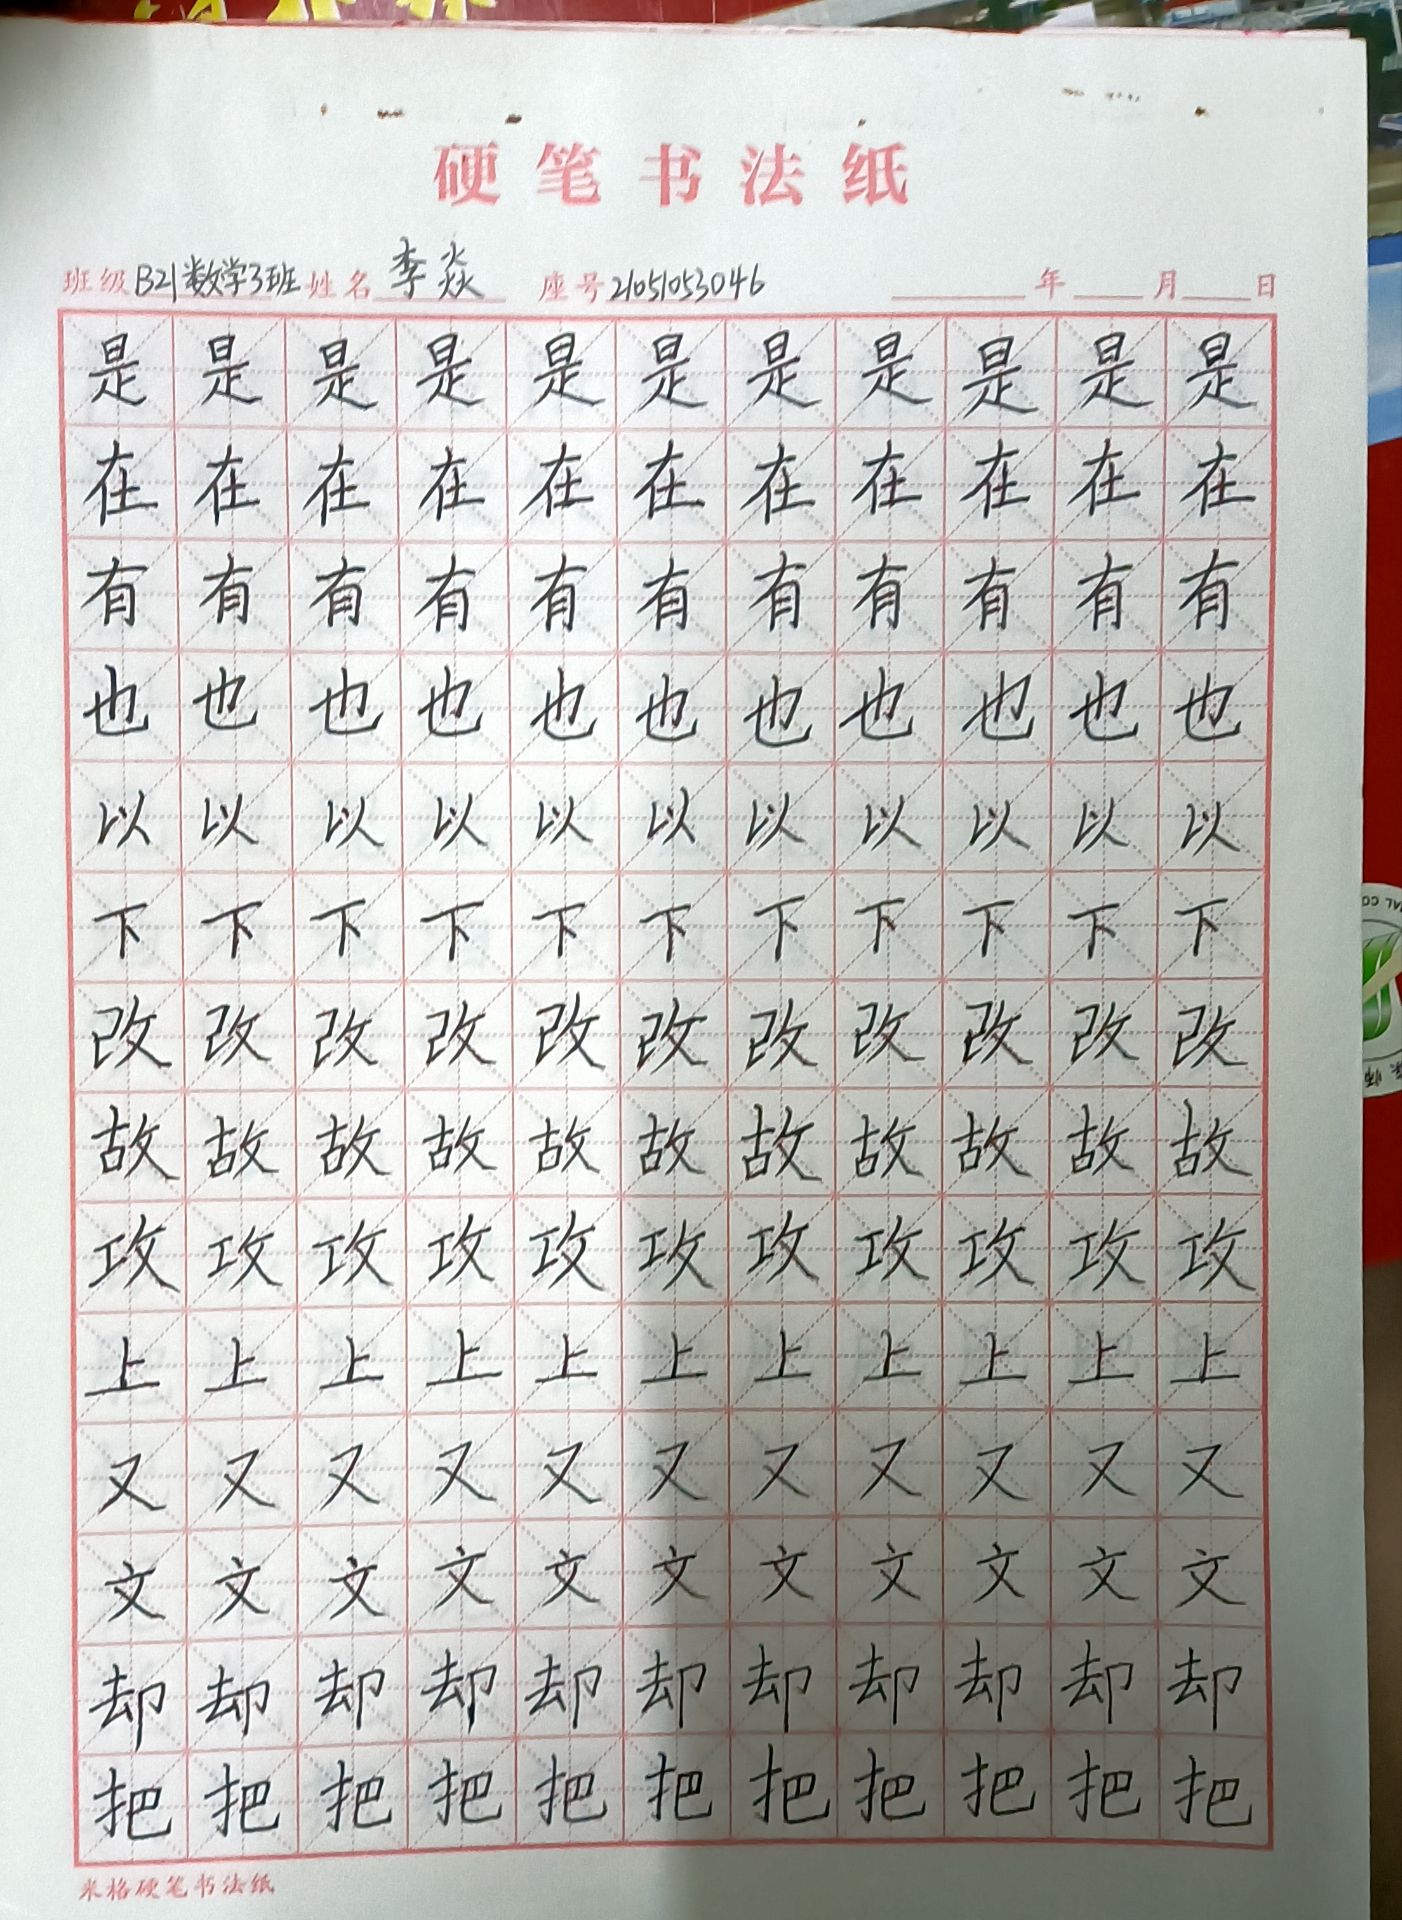 硬笔书法纸
班级 B21数学3班 姓名 李焱 座号 21051053046 年 月 日
是是是是是是是是是是是
在在在在在在在在在在在
有有有有有有有有有有有
也也也也也也也也也也也
以以以以以以以以以以以
下下下下下下下下下下下
改改改改改改改改改改改
故故故故故故故故故故故
攻攻攻攻攻攻攻攻攻攻攻
上上上上上上上上上上上
又又又又又又又又又又又
文文文文文文文文文文文
却却却却却却却却却却却
把把把把把把把把把把把
米格硬笔书法纸